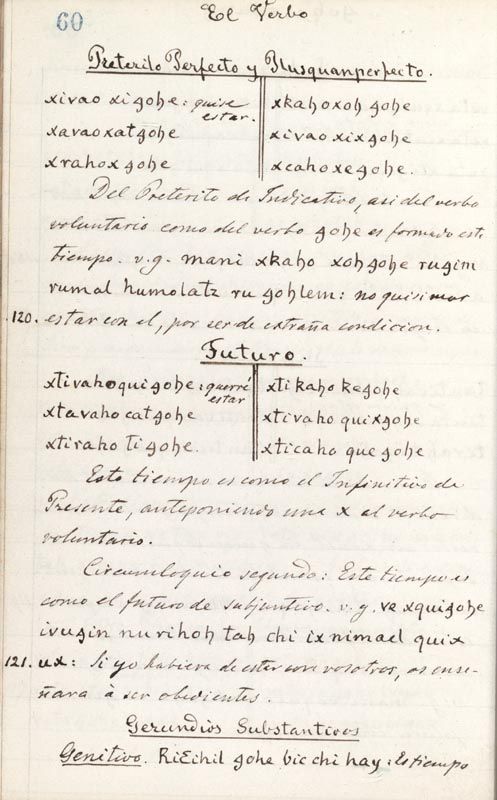 60
El Verbo
Preterito Perfecto y Plusquanperfecto.
xivao xi gohe: quise estar. xkahoxoh gohe
xavaoxat gohe xivao xixgohe
xrahox gohe xcahoxegohe.
Del Preterito de Indicativo, asi del verbo
voluntario como del verbo gohe es formado este
tiempo. v.g. mani xkaho xohgohe rugin
rumal humolatz ru gohlem: no quisimos
120. estar con el, por ser de extraña condicion.
Futuro.
xtivahoquigohe: querré estar xtikaho kegohe
xtavaho catgohe xtivaho quixgohe
xtiraho ti gohe xticaho que gohe
Este tiempo es como el Infinitivo de
Presente, anteponiendo una x al verbo
voluntario.
Circumloquio segundo: Este tiempo es
como el futuro de subjuntivo. v.g. ve xquigohe
ivugin nurihoh tah chi ix nimael quix
121. ux: Si yo hubiera de estar con vosotros, os ense-
ñara à ser obedientes.
Gerundios Substantivos
Genitivo. Riɛihil gohe bic chi hay: Es tiempo